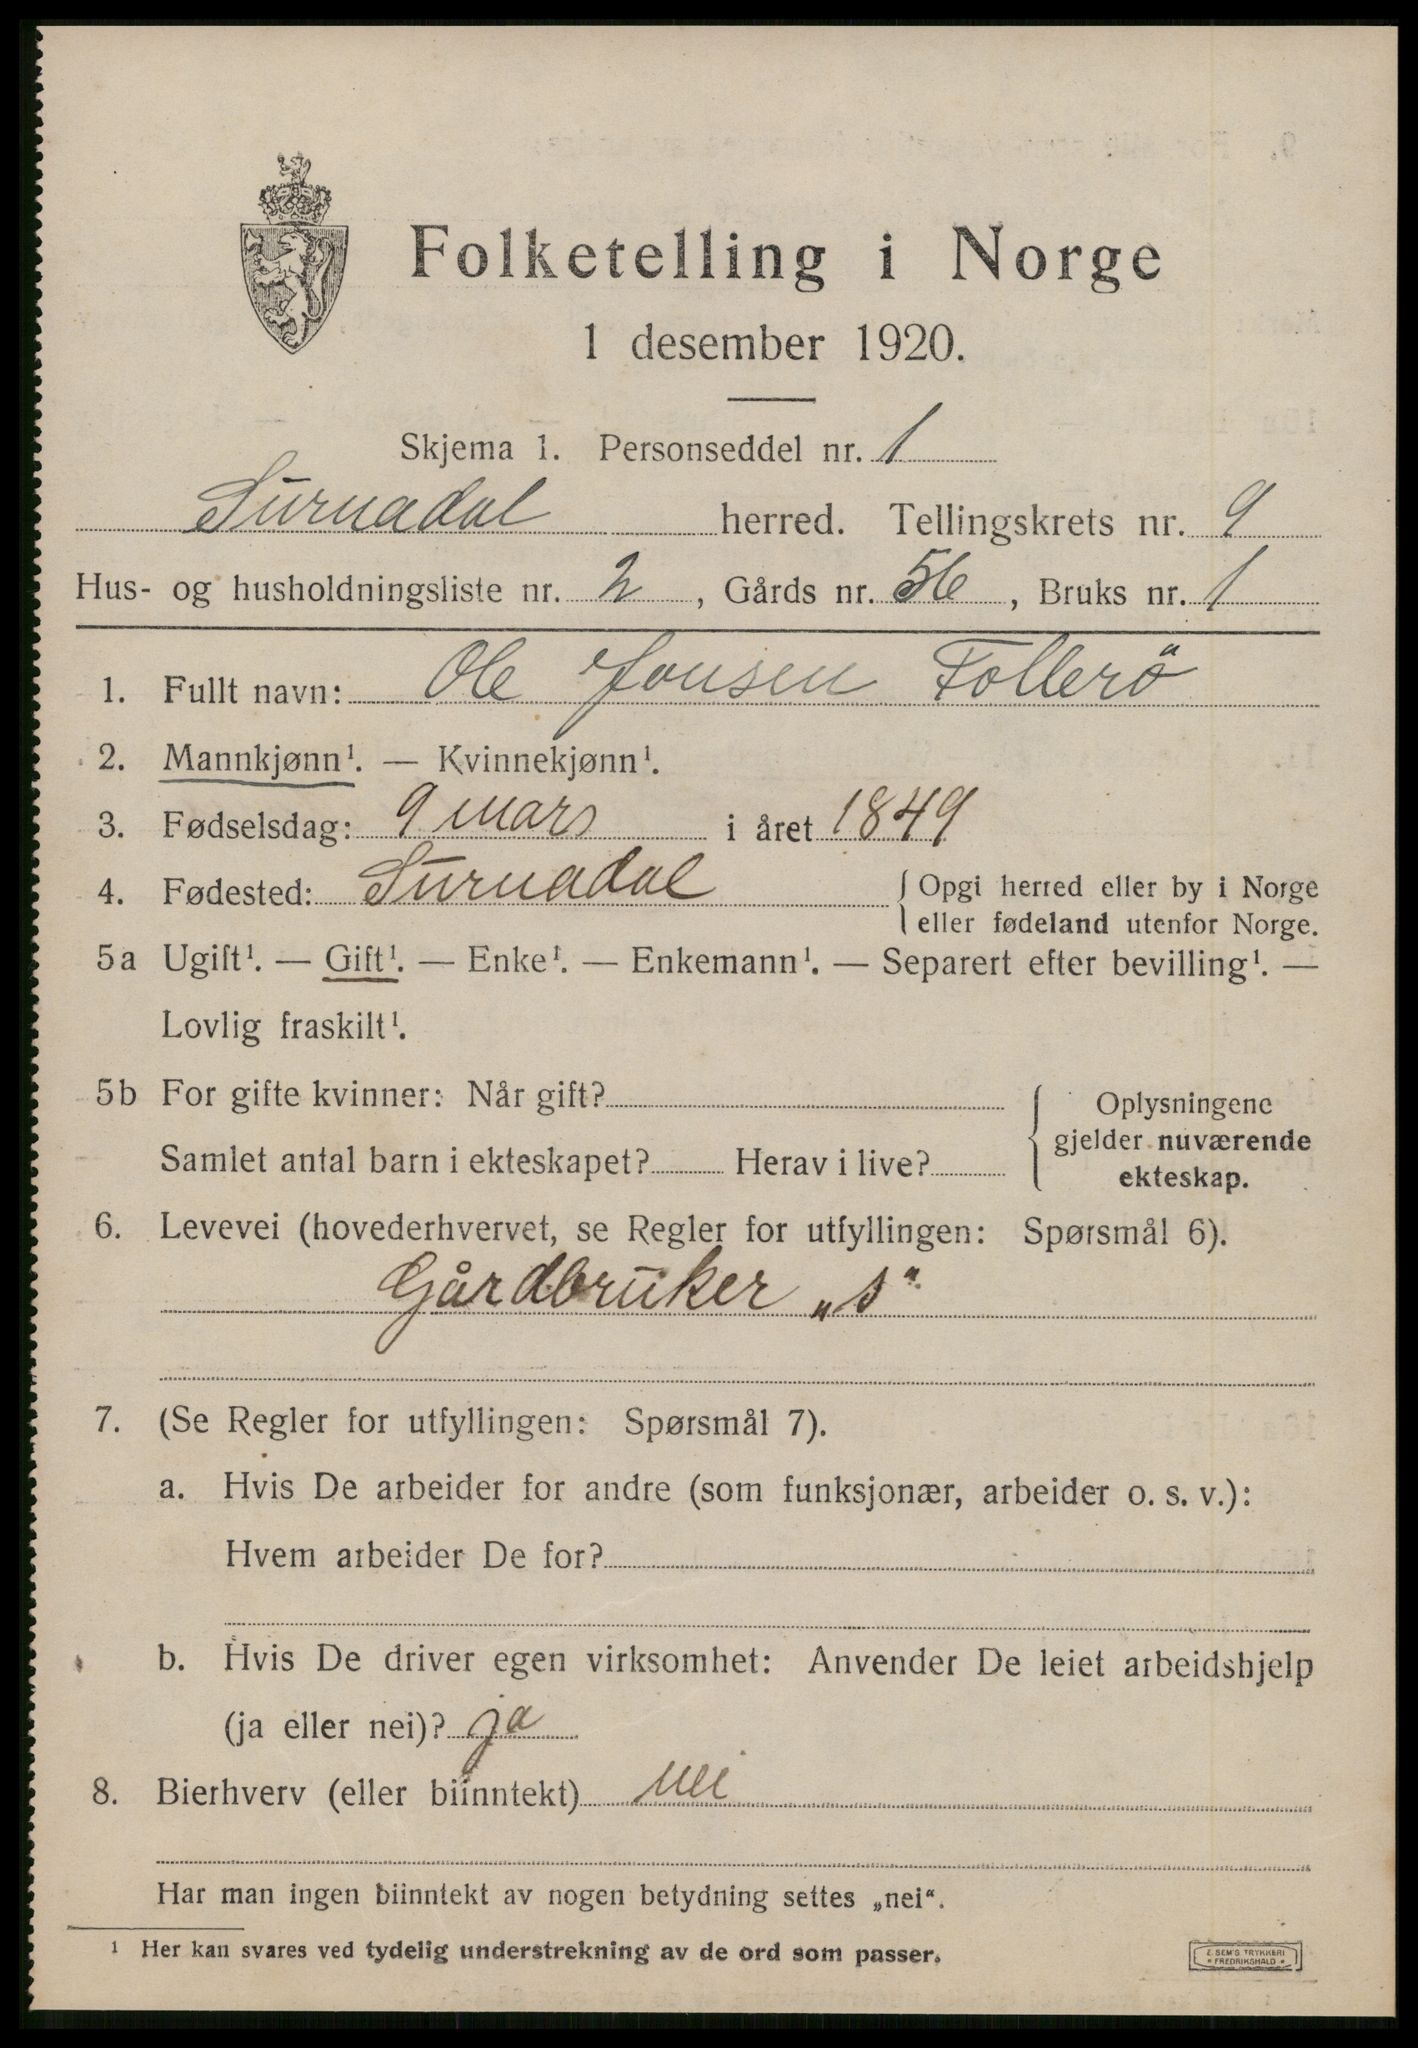 Folketelling i Norge
1 desember 1920.
Skjema 1. Personseddel nr. 1
Surnadal herred. Tellingskrets nr. 9
Hus- og husholdningsliste nr. 2, Gårds nr. 56, Bruks nr. 1
1. Fullt navn: Ole Jonsen Follerö
2. Mannkjønn¹. — Kvinnekjønn¹.
3. Fødselsdag: 9 mars i året 1849
4. Fødested: Surnadal { Opgi herred eller by i Norge
eller fødeland utenfor Norge.
5a Ugift¹. — Gift¹. — Enke¹. — Enkemann¹. — Separert efter bevilling¹. —
Lovlig fraskilt¹.
5b For gifte kvinner: Når gift?
Samlet antal barn i ekteskapet? Herav i live?
{ Oplysningene
gjelder nuværende
ekteskap.
6. Levevei (hovederhvervet, se Regler for utfyllingen: Spørsmål 6).
Gårdbruker „s“
7. (Se Regler for utfyllingen: Spørsmål 7).
a. Hvis De arbeider for andre (som funksjonær, arbeider o. s. v.):
Hvem arbeider De for?
b. Hvis De driver egen virksomhet: Anvender De leiet arbeidshjelp
(ja eller nei)? ja
8. Bierhverv (eller biinntekt) nei
Har man ingen biinntekt av nogen betydning settes „nei“.
¹ Her kan svares ved tydelig understrekning av de ord som passer.
E. SEM'S TRYKKERI
* FREDRIKSHALD *